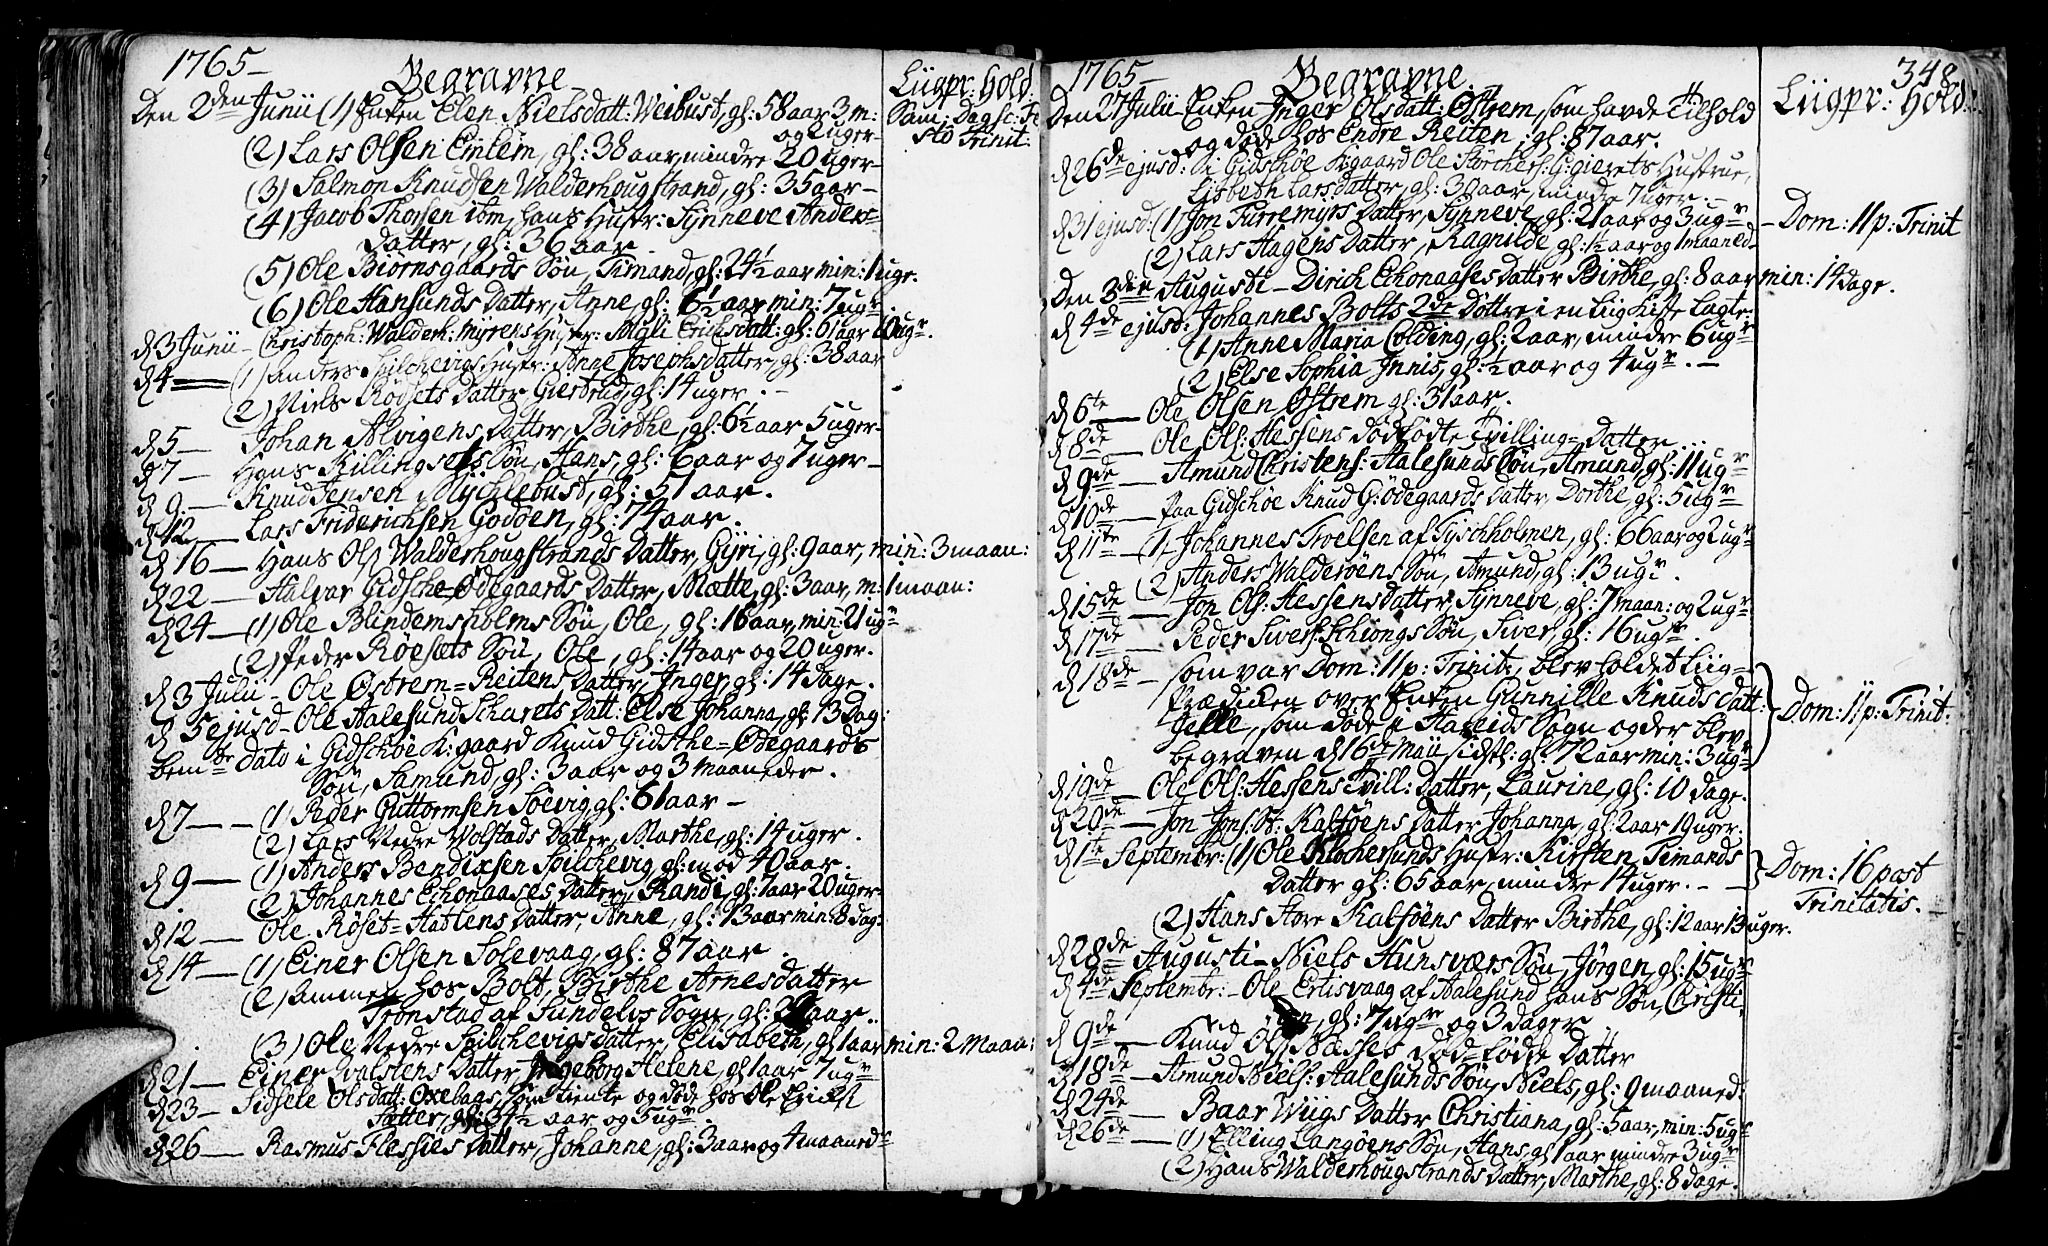 1765 –
Begravne
Liigpr: hold:
Den 2den Junii (1) Enken Elen Nielsdatt: Weibust, gl: 58 aar 3 m:
og 2 uger –
Sam: Dag sc: Fe
sto Trinit:
(2) Lars Olsen Emlem, gl: 38 aar, mindre 20 uger –
(3) Salmon Knudsen Walderhougstrand, gl: 35 aar –
(4) Jacob Thoresen ibm, hans Hustr: Synneve Anders=
Datter, gl: 36 aar –
(5) Ole Biörnsgaards Sön, Simand, gl: 24½ aar min: 1 uge.
(6) Ole Hansunds Datter, Anne, gl: 6½ aar, min: 7 ugr
d 3 Junii – Christoph: Walderh: Myrens Hustr: Magli Erichsdatt: gl: 61 aar 10 ugr.
d 4 — (1) Anders Spilchevigs Hustr: Anne Josephsdatter, gl: 38 aar
(2) Niels Rödsets Datter Giertrud, gl: 14 uger. –
d 5 — Johan Alvigens Datter, Birthe, gl: 6½ aar 5 uger –
d 7 — Hans Killingsets Sön, Hans, gl: 6 aar og 7 uger –
d 9. — Knud Jensen Mychlebust, gl: 51 aar.
d 12 — Lars Friderichsen Godöen, gl: 74 aar.
d 16 — Hans Ols Walderhougstrands Datter, Gyri, gl: 9 aar, min: 3 maan:
d 22 — Halvor Gidsche Ödegaards Datter, Mætte, gl: 3 aar, m: 1 maan:
d 24 — (1) Ole Blindemsholms Sön, Ole, gl: 16 aar, min: 21 ugr
(2) Peder Röesæts Sön, Ole, gl: 14 aar og 20 uger.
d 3 Julii – Ole Östrem = Reitens Datter, Inger, gl: 14 Dage.
d 5 ejusd – Ole Aalesund Skarets Datt: Else Johanna, gl: 13 Dag:
bemte Dato i Gidschöe K:gaard Knud Gidsche = Ödegaards
Sön, Samund, gl: 3 aar og 3 Maaneder.
d 7 — (1) Peder Guttormsen Söevig, gl: 61 aar –
(2) Lars Nedre Wolstads Datter, Marthe, gl: 14 uger.
d 9 — (1) Anders Bendixsen Spilchevig, gl: mod 40 aar.
(2) Johannes Echonaases Datter, Randi, gl: 7 aar 20 uger –
d 12 — Ole Röset = Hatlens Datter, Anne, gl: 13 aar min: 8 dag:
d 14 — (1) Einer Olsen Solevaag, gl: 87 aar.
(2) Ammen hos Bolt, Birthe Arnesdatter
Tronstad af Sundelvs Sogn, gl: aar.
(3) Ole Nedre Spilchevigs datter, Elisabeth, gl 1 aar min: 2 Maan:
d 21 — Einer Datter, Ingeborg Helene, gl 1 aar 7 ugr
d 23 – Sidsele Olsdatt: Oxebaas, som tiente og döde hos Ole Erichs
Sætter, gl: 34½ aar og 5 ugr.
d 26 — Rasmus Flessies Datter, Johanne, gl: 3 aar og 4 maaneder
1765 –
Begravne
348
Liigpr: hold:
Den 27 Julii Enken Inger Olsdatt: Östrem, som havde Tilhold
og döde hos Endre Reiten, gl: 87 aar.
d 26de ejusd: i Gidschöe K:gaard Ole Hustrue,
Lisbeth Larsdatter, gl: 38 aar, mindre 7 uger. –
d 31 ejusd: (1) Jon Furremyrs Datter, Synneve, gl: 21 aar og 3 ugr – Dom: 11 p: Trinit
(2) Lars Hagens Datter, Ragnilde gl: 1½ aar og 1 maaned –
Den 3die Augusti – Dirich Echonaases Datter Birthe, gl: 8 aar min: 14 dage.
d 4de ejusd: Johannes Bolts 2de Döttre i en Liigkiste lagte
(1) Anne Maria Colding, gl: 2 aar, mindre 6 ugr
(2) Else Sophia Innis, gl: ½ aar og 4 ugr. –
d 6te — Ole Olsen Östrem gl: 31 aar.
d 8de — Ole Ols: Hessens dödfödte Tvilling = Datter
d 9de — Amund Christens: Aalesunds Sön, Amund, gl: 11 ugr
d 10de — Paa Gidschöe Knud G: Ödegaards Datter, Dorthe, gl: 5 ugr
d 11te — (1) Johannes Troelsen af Tyschholmen, gl: 66 aar og 2 ugr
(2) Anders Walderöens Sön, Amund, gl: 13 ugr.
d 15de — Jon Ols: Hessens Datter, Synneve, gl: 7 maan: og 2 ugr
d 17de — Peder Sivers: Schiongs Sön, Siver, gl: 16 ugr.
d 18de — som var Dom: 11 p: Trinit, blev holdet Liig=
Prædiken over Enken Gunnille Knudsdatt:
Jelle, som döde i Hareids Sogn og der blev
begraven d 16de Maii sidstl: gl: 72 aar min: 3 ugr
Dom: 11 p: Trinit.
d 19de — Ole Ols: Hessens Tvill: Datter, Laurine, gl: 10 dage.
d 20de — Jon Jons: St: Kalsöens Datter Johanna, gl: 2 aar 19 uger.
d 1te Septembr: (1) Ole Klochersunds Hustr: Kirsten Simands
Datter gl: 65 aar, mindre 14 uger. –
Dom: 16 post
Trinitatis.
(2) Hans Store Kalsöens Datter Birthe, gl: 12 aar 13 uger.
d 28de Augusti – Niels Hunsværs Sön, Jörgen, gl: 15 ugr
d 4de Septembr: – Ole Ertisvaag af Aalesund hans Sön, Christi
gl: 7 ugr og 3 dager
d 9de — Knud Ols Næsses död = födde Datter
d 18de — Amund Niels: Aalesunds Sön, Niels, gl: 9 maaned:
d 24de — Baar Wiigs Datter Christiana, gl: 5 aar, min: 5 ugr
d 26de — (1) Elling Langöens Sön, Hans, gl 1 aar mindre 3 ugr
(2) Hans Walderhougstrands Datter, Marthe, gl: 8 dage.